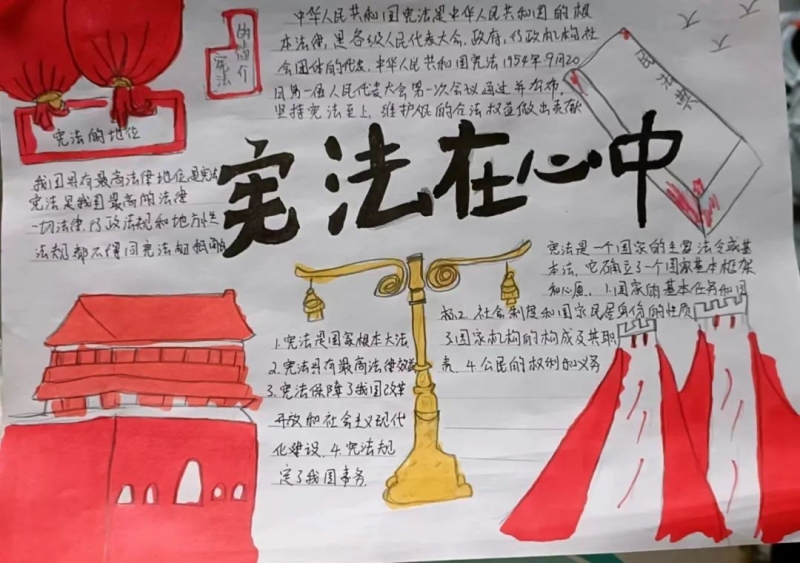 宪法的简介
中华人民共和国宪法是中华人民共和国的根
本法律,是各级人民代表大会、政府、行政机构社
会团体的代表,中华人民共和国宪法1954年9月20
日第一届人民代表大会第一次会议通过并公布,
坚持宪法至上,维护人民的合法权益做出贡献
宪法的地位
我国具有最高法律地位是宪法
宪法是我国最高的法律
一切法律、行政法规和地方性
法规都不得同宪法相抵触
宪法在心中
1.宪法是国家根本大法
2.宪法具有最高法律效
3.宪法保障了我国改革
开放和社会主义现代
化建设、4.宪法规
定了我国事务
宪法是一个国家的主要法令或基
本法,它确立了一个国家基本框架
和心愿,1.国家的基本任务和目
标2.社会制度和国家民是身份的性质
3国家机构的构成及其职
责、4.公民的权利和义务